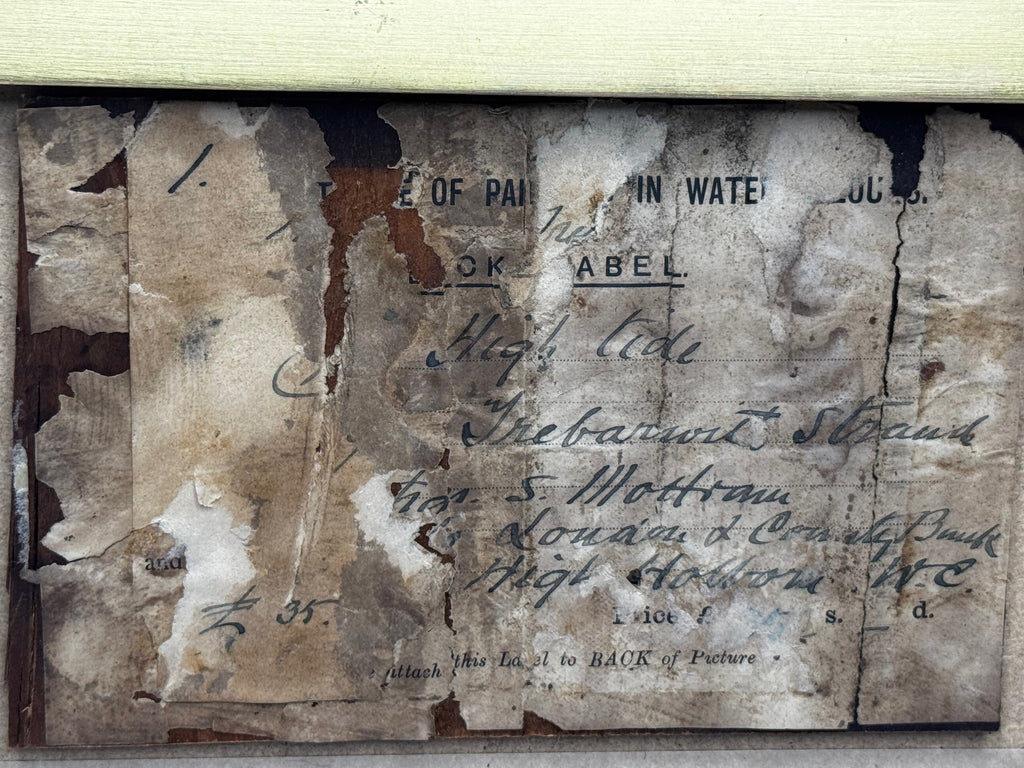 1.
OF PAI IN WATE
ABEL.
High tide
Trebarwith Strand
S. Mottram
London & County Bank
High Holborn W C.
and
£ 35.
Price £ s. d.
attach this Label to BACK of Picture